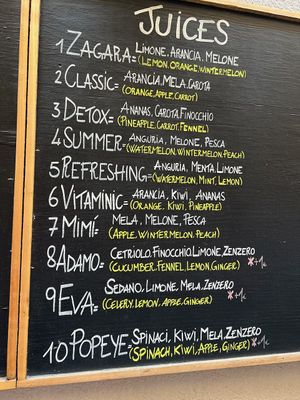 JUICES
1 ZAGARA= LIMONE, ARANCIA, MELONE
(LEMON, ORANGE, WINTERMELON)
2 CLASSIC= ARANCIA, MELA, CAROTA
(ORANGE, APPLE, CARROT)
3 DETOX= ANANAS, CAROTA, FINOCCHIO
(PINEAPPLE, CARROT, FENNEL)
4 SUMMER= ANGURIA, MELONE, PESCA
(WATERMELON, WINTERMELON, PEACH)
5 REFRESHING= ANGURIA, MENTA, LIMONE
(WATERMELON, MINT, LEMON)
6 VITAMINIC= ARANCIA, KIWI, ANANAS
(ORANGE, KIWI, PINEAPPLE)
7 MIMÍ= MELA, MELONE, PESCA
(APPLE, WINTERMELON, PEACH)
8 ADAMO= CETRIOLO, FINOCCHIO, LIMONE, ZENZERO
(CUCUMBER, FENNEL, LEMON, GINGER) *+1€
9 EVA= SEDANO, LIMONE, MELA, ZENZERO
(CELERY, LEMON, APPLE, GINGER) *+1€
10 POPEYE= SPINACI, KIWI, MELA ZENZERO
(SPINACH, KIWI, APPLE, GINGER) *+1€